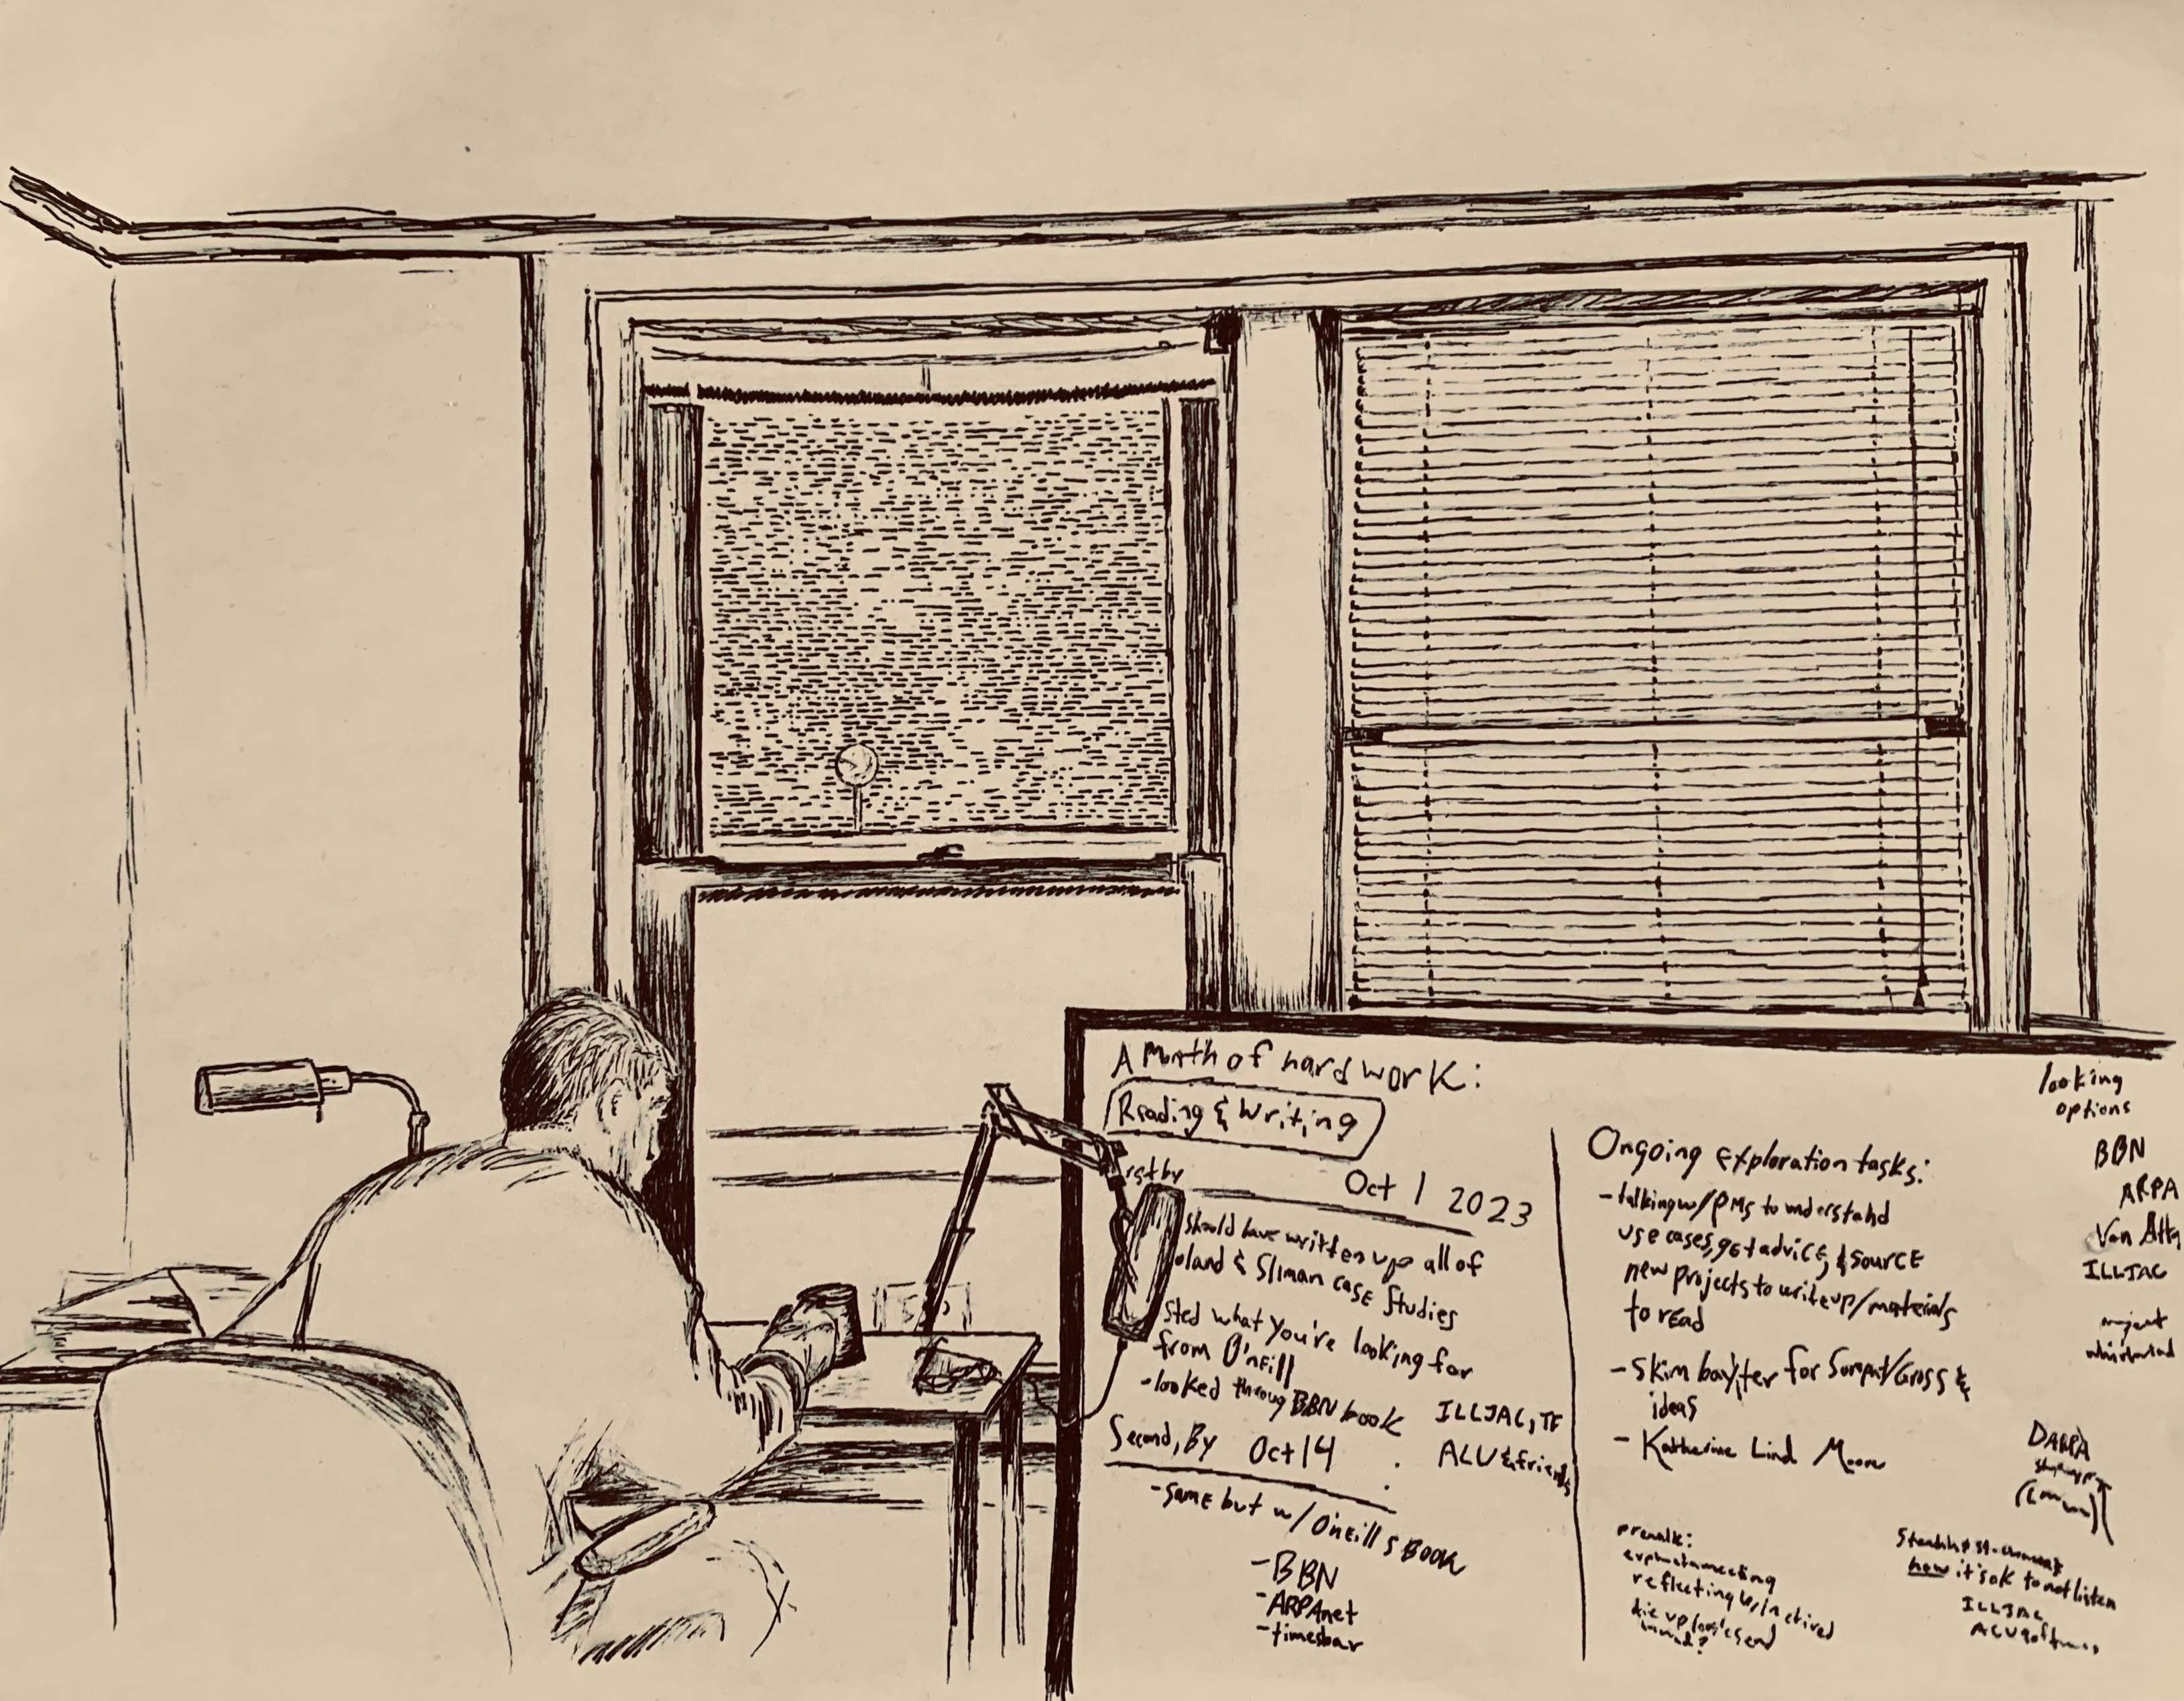 A Month of hard work:
Reading & Writing
Oct 1 2023
should have written up all of
oland & Sliman case studies
sted what you're looking for
from O'neill
-looked throug BBN book
ILLIAC, TF
ALU & friends
Second, By Oct 14
-same but w/ O'neill s Book
-BBN
-ARPAnet
-timeshar
Ongoing exploration tasks:
-talking w/ PMs to understand
use cases, get advice, & source
new projects to write up/materials
to read
-Skim baxter for
ideas
- Katherine Lind Moore
looking
options
BBN
ARPA
Van Atta
ILLIAC
project
whirlwind
DARPA
prewalk:
meeting
reflecting
die up
how it's ok to not listen
ILLIAC